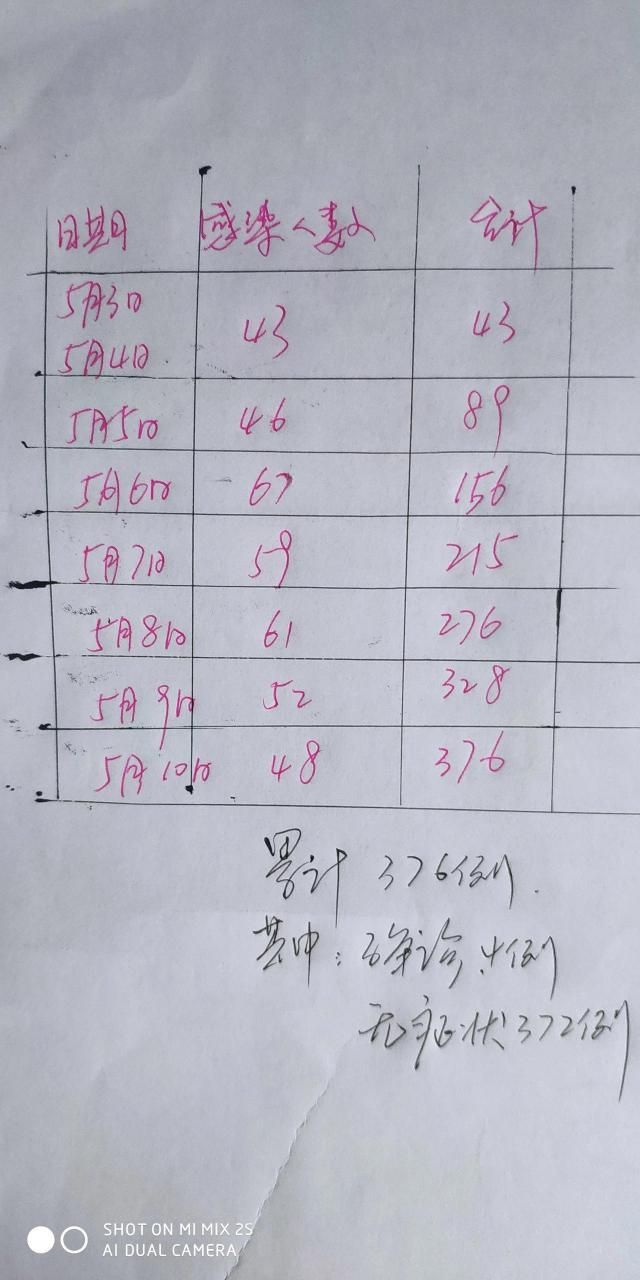 日期 感染人数 合计
5月3日
5月4日 43 43
5月5日 46 89
5月6日 67 156
5月7日 59 215
5月8日 61 276
5月9日 52 328
5月10日 48 376
累计 376例.
其中：确诊4例
无症状372例
SHOT ON MI MIX 2S
AI DUAL CAMERA